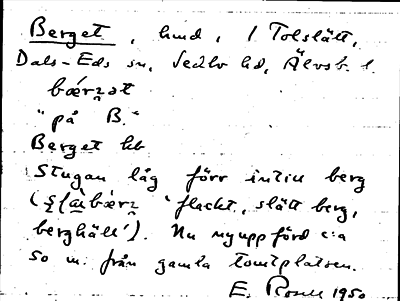 Berget, hmd, i Tolslätt,
Dals-Eds sn, Sedlbr hd, Älvsb. l.
bærʒət
"på B."
Berget hb
Stugan låg förr intill berg
(bærʒ 'flackt, slätt berg,
berghäll'). Nu nyuppförd c:a
50 m. från gamla tomtplatsen.
E. Rosell 1950